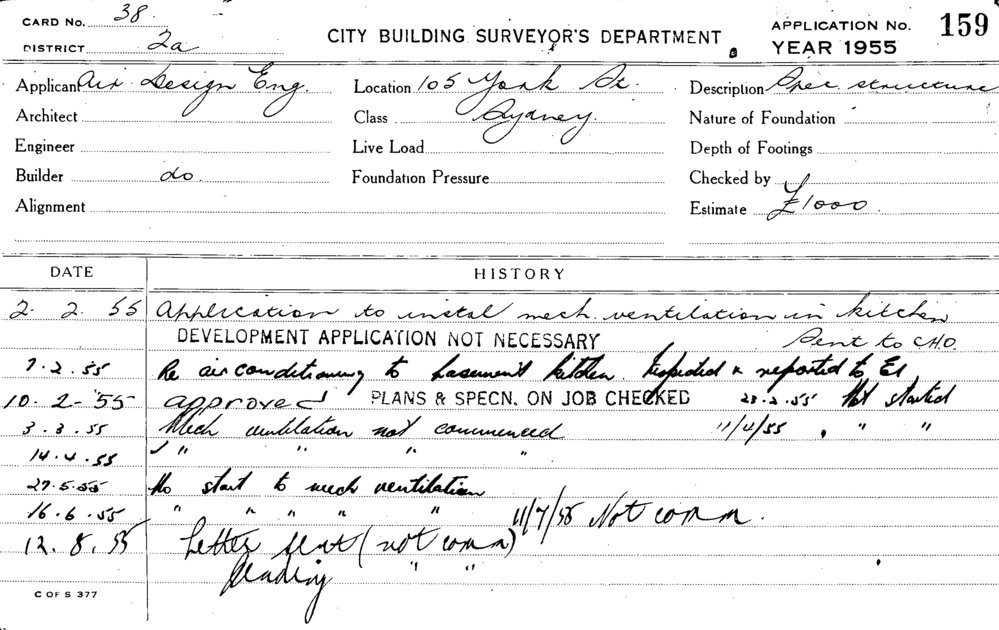 CARD No. 38.
DISTRICT 2a
CITY BUILDING SURVEYOR'S DEPARTMENT
APPLICATION No. 159
YEAR 1955
Applicant Air Design Eng. Location 105 York St. Description Spec. structure
Architect Class Sydney. Nature of Foundation
Engineer Live Load Depth of Footings
Builder do. Foundation Pressure Checked by
Alignment Estimate £1000.
DATE HISTORY
2. 2. 55 Application to instal mech. ventilation in kitchen
DEVELOPMENT APPLICATION NOT NECESSARY Sent to C.H.O.
7.2.55 Re airconditioning to basement kitchen Inspected & reported to
10.2-55 approved PLANS & SPECN. ON JOB CHECKED 23.2.55 Not started
3.3.55 Mech ventilation not commenced 11/4/55 " " "
14.4.55 " " " "
27.5.55 No start to mech ventilation
16.6.55 " " " " " 11/7/55 Not comm.
12.8.55 Letter sent (not comm)
Pending " "
C OF S 377